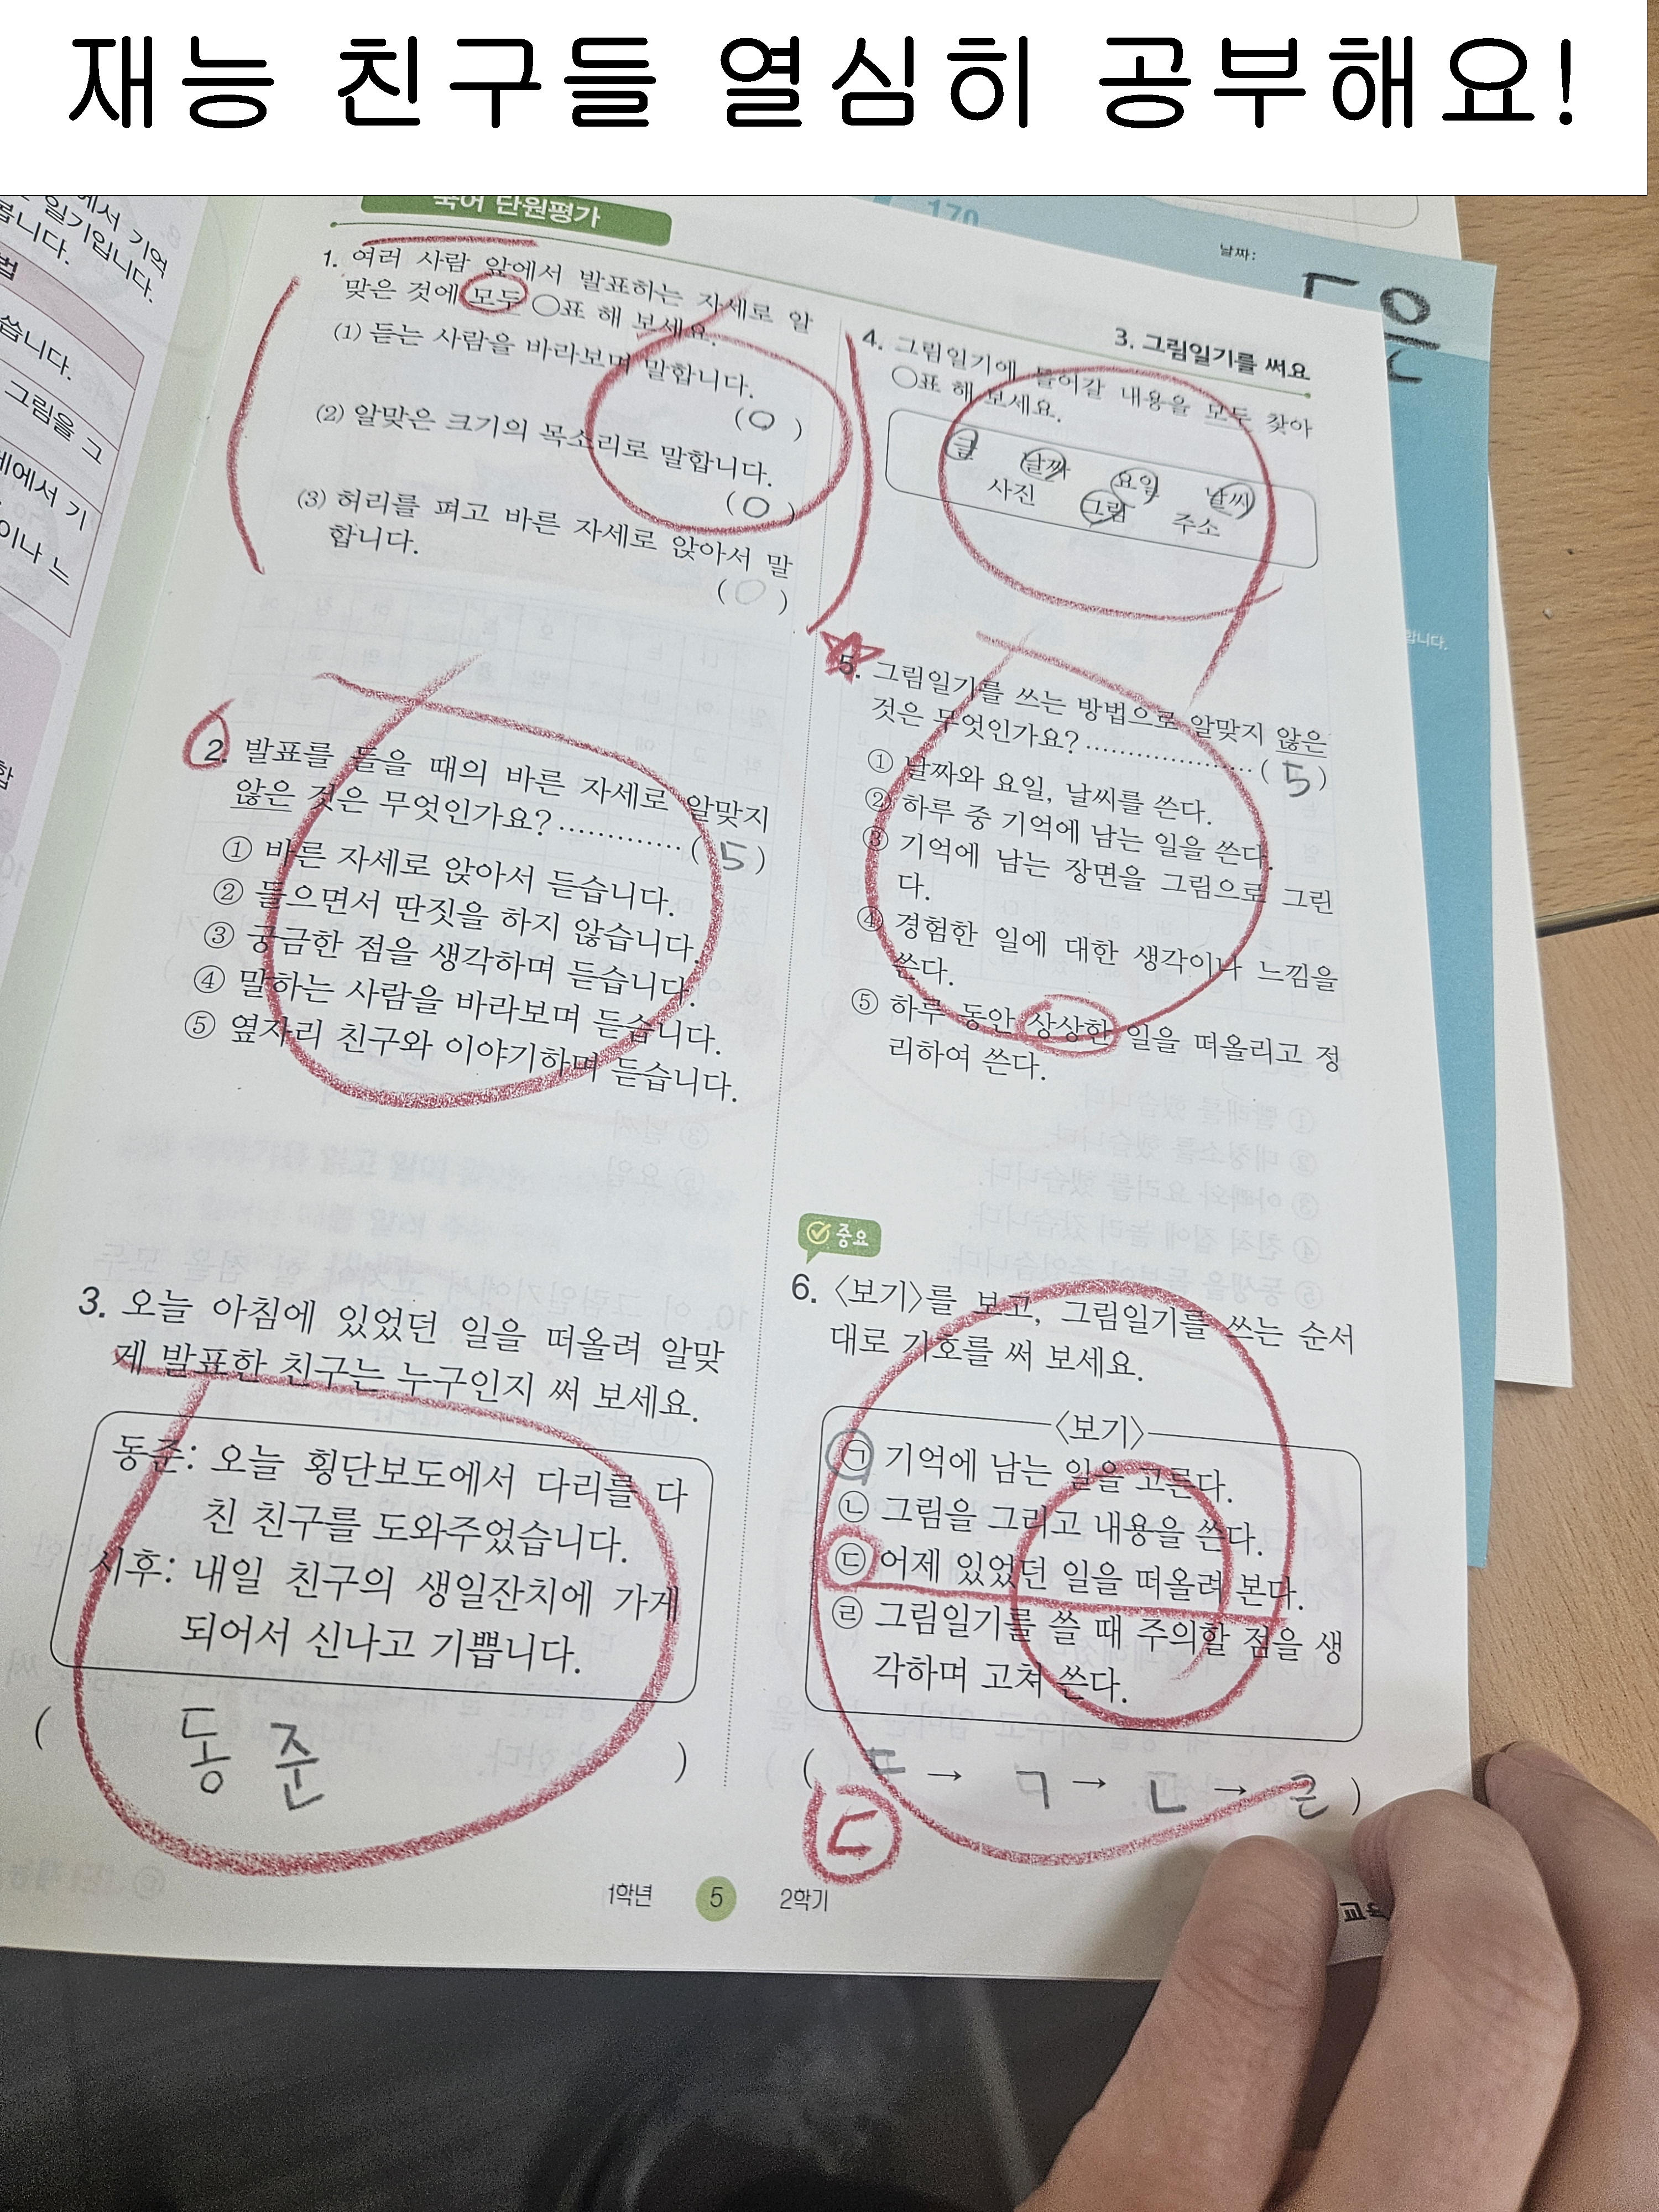 재능 친구들 열심히 공부해요!
국어 단원평가
170
날짜:
3. 그림일기를 써요
1. 여러 사람 앞에서 발표하는 자세로 알
맞은 것에 모두 ○표 해 보세요.
(1) 듣는 사람을 바라보며 말합니다.
( O )
(2) 알맞은 크기의 목소리로 말합니다.
( O )
(3) 허리를 펴고 바른 자세로 앉아서 말
합니다.
( O )
2. 발표를 들을 때의 바른 자세로 알맞지
않은 것은 무엇인가요? ············ ( 5 )
① 바른 자세로 앉아서 듣습니다.
② 들으면서 딴짓을 하지 않습니다.
③ 궁금한 점을 생각하며 듣습니다.
④ 말하는 사람을 바라보며 듣습니다.
⑤ 옆자리 친구와 이야기하며 듣습니다.
3. 오늘 아침에 있었던 일을 떠올려 알맞
게 발표한 친구는 누구인지 써 보세요.
동준: 오늘 횡단보도에서 다리를 다
친 친구를 도와주었습니다.
시후: 내일 친구의 생일잔치에 가게
되어서 신나고 기쁩니다.
( 동준 )
4. 그림일기에 들어갈 내용을 모두 찾아
○표 해 보세요.
글 날짜 요일 날씨
사진 그림 주소
5. 그림일기를 쓰는 방법으로 알맞지 않은
것은 무엇인가요? ······················ ( 5 )
① 날짜와 요일, 날씨를 쓴다.
② 하루 중 기억에 남는 일을 쓴다.
③ 기억에 남는 장면을 그림으로 그린
다.
④ 경험한 일에 대한 생각이나 느낌을
쓴다.
⑤ 하루 동안 상상한 일을 떠올리고 정
리하여 쓴다.
중요
6. 〈보기〉를 보고, 그림일기를 쓰는 순서
대로 기호를 써 보세요.
〈보기〉
㉠ 기억에 남는 일을 고른다.
㉡ 그림을 그리고 내용을 쓴다.
㉢ 어제 있었던 일을 떠올려 본다.
㉣ 그림일기를 쓸 때 주의할 점을 생
각하며 고쳐 쓴다.
( ㄷ → ㄱ → ㄴ → ㄹ )
ㄷ
1학년 5 2학기